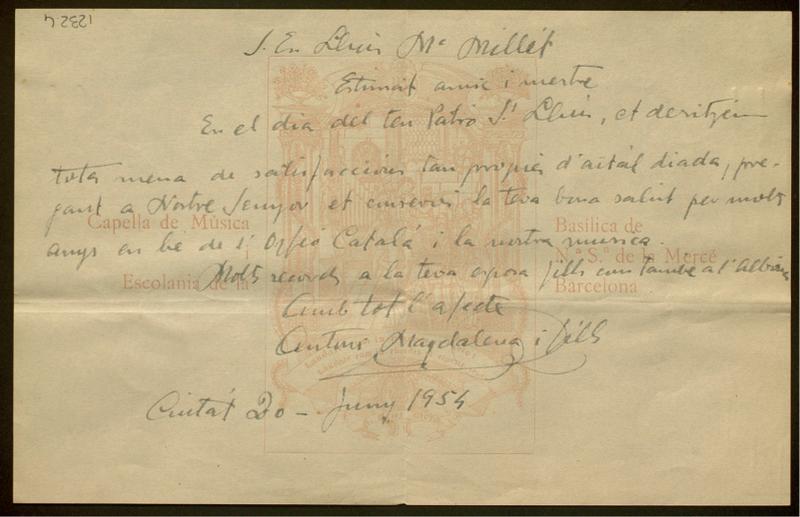 1232-4
S. En Lluis Mª Millét
Estimat amic i mestre
En el dia del teu Patró St Lluis, et desitjem
tota mena de satisfaccións tan propies d'aital diada, pre-
gant a Nostre Senyor et conservi la teva bona salut per molts
anys en bé de l'Orfeó Catalá i la nostra musica.
Molts records a la teva esposa fills com també a l'
Amb tot l'afecte
Antoni Magdalena i fills
Ciutát 20 - Juny 1954
Capella de Música
i
Escolania de la
Basílica de
N.ª S.ª de la Mercé
Barcelona